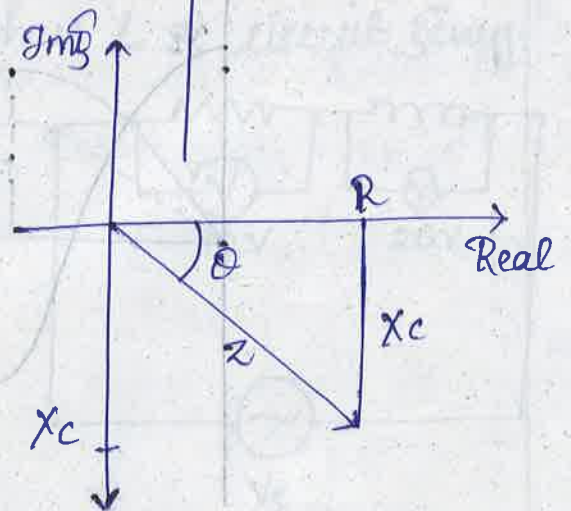 Img
R
Real
θ
Xc
Z
Xc